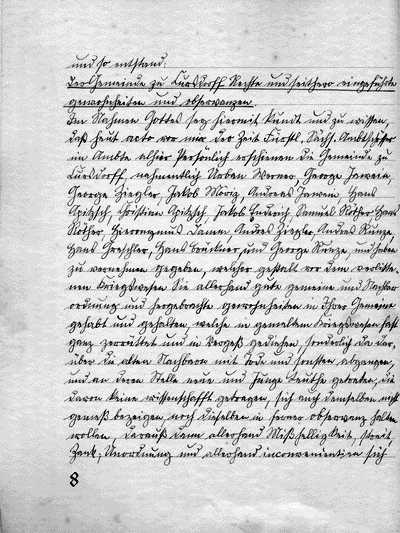 und so entstand:
Der Gemeinde zu Cursdorff Rechte und seithero eingeführte
gewohnheiten und observanzen.
Im Nahmen Gottes sey hiermit kündt und zu wissen,
daß heut acto vor mir der Zeit Fürstl. Sächs. Ambtsschösser
im Ambte alhier Persönlich erschienen die Gemeinde zu
Cursdorff, nahmentlich Urban Werner, George
George Ziegler, Jakob Möritz, Andreas Hans
Apitzsch, Christian Apitzsch, Jakob Enderich, Samuel Rother, Hans
Rother, Hieronymus Andres Ziegler, Andres Kunze,
Hans Greschler, Hans Brückner und George Kunze, und haben
zu vernehmen gegeben, welcher gestalt vor dem verlitte-
nen Kriegswesen Sie allerhand gute gemeine und Nachbar
ordnung und hergebrachte gewohnheiten in Ihrer Gemeine
gehabt und gehalten, welche in gemeltem Kriegswesen fast
ganz zerrüttet und in Vergeß gediehen, sonderlich da dar-
über die alten Nachbarn mit Tode und sonsten abgangen,
und an deren Stelle neue und Junge Leuthe getreten, die
davon keine wissenschafft getragen, sich auch demselben nicht
gemeß bezeigen, noch dieselben in ferner observanz halten
wollen, darauß denn allerhand Mißhelligkeit, streit,
Zank, Unordnung und allerhand inconvenientien sich
8